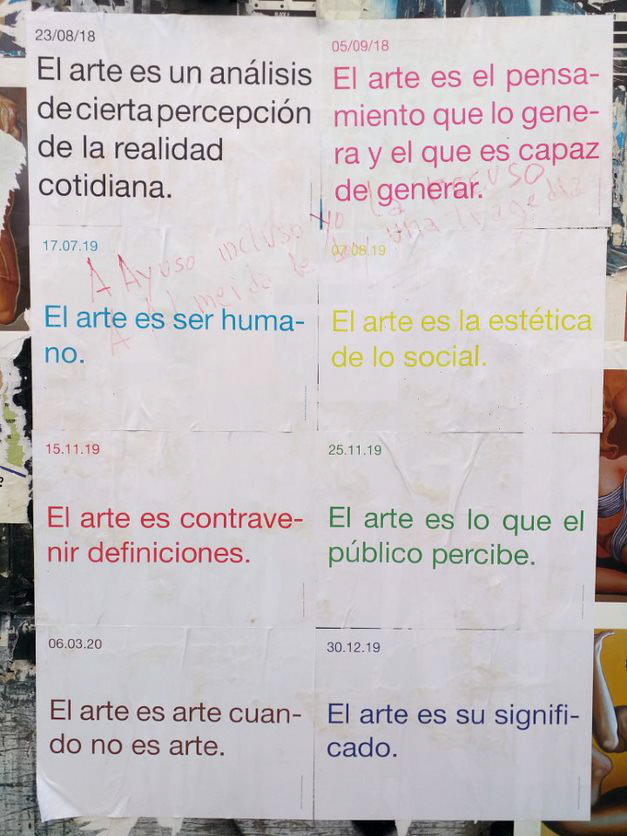 23/08/18
El arte es un análisis
de cierta percepción
de la realidad
cotidiana.
05/09/18
El arte es el pensa-
miento que lo gene-
ra y el que es capaz
de generar.
17.07.19
El arte es ser huma-
no.
07.08.19
El arte es la estética
de lo social.
A Ayuso incluso yo la acuso
A Almeida le doy una tragedia
15.11.19
El arte es contrave-
nir definiciones.
25.11.19
El arte es lo que el
público percibe.
06.03.20
El arte es arte cuan-
do no es arte.
30.12.19
El arte es su signifi-
cado.